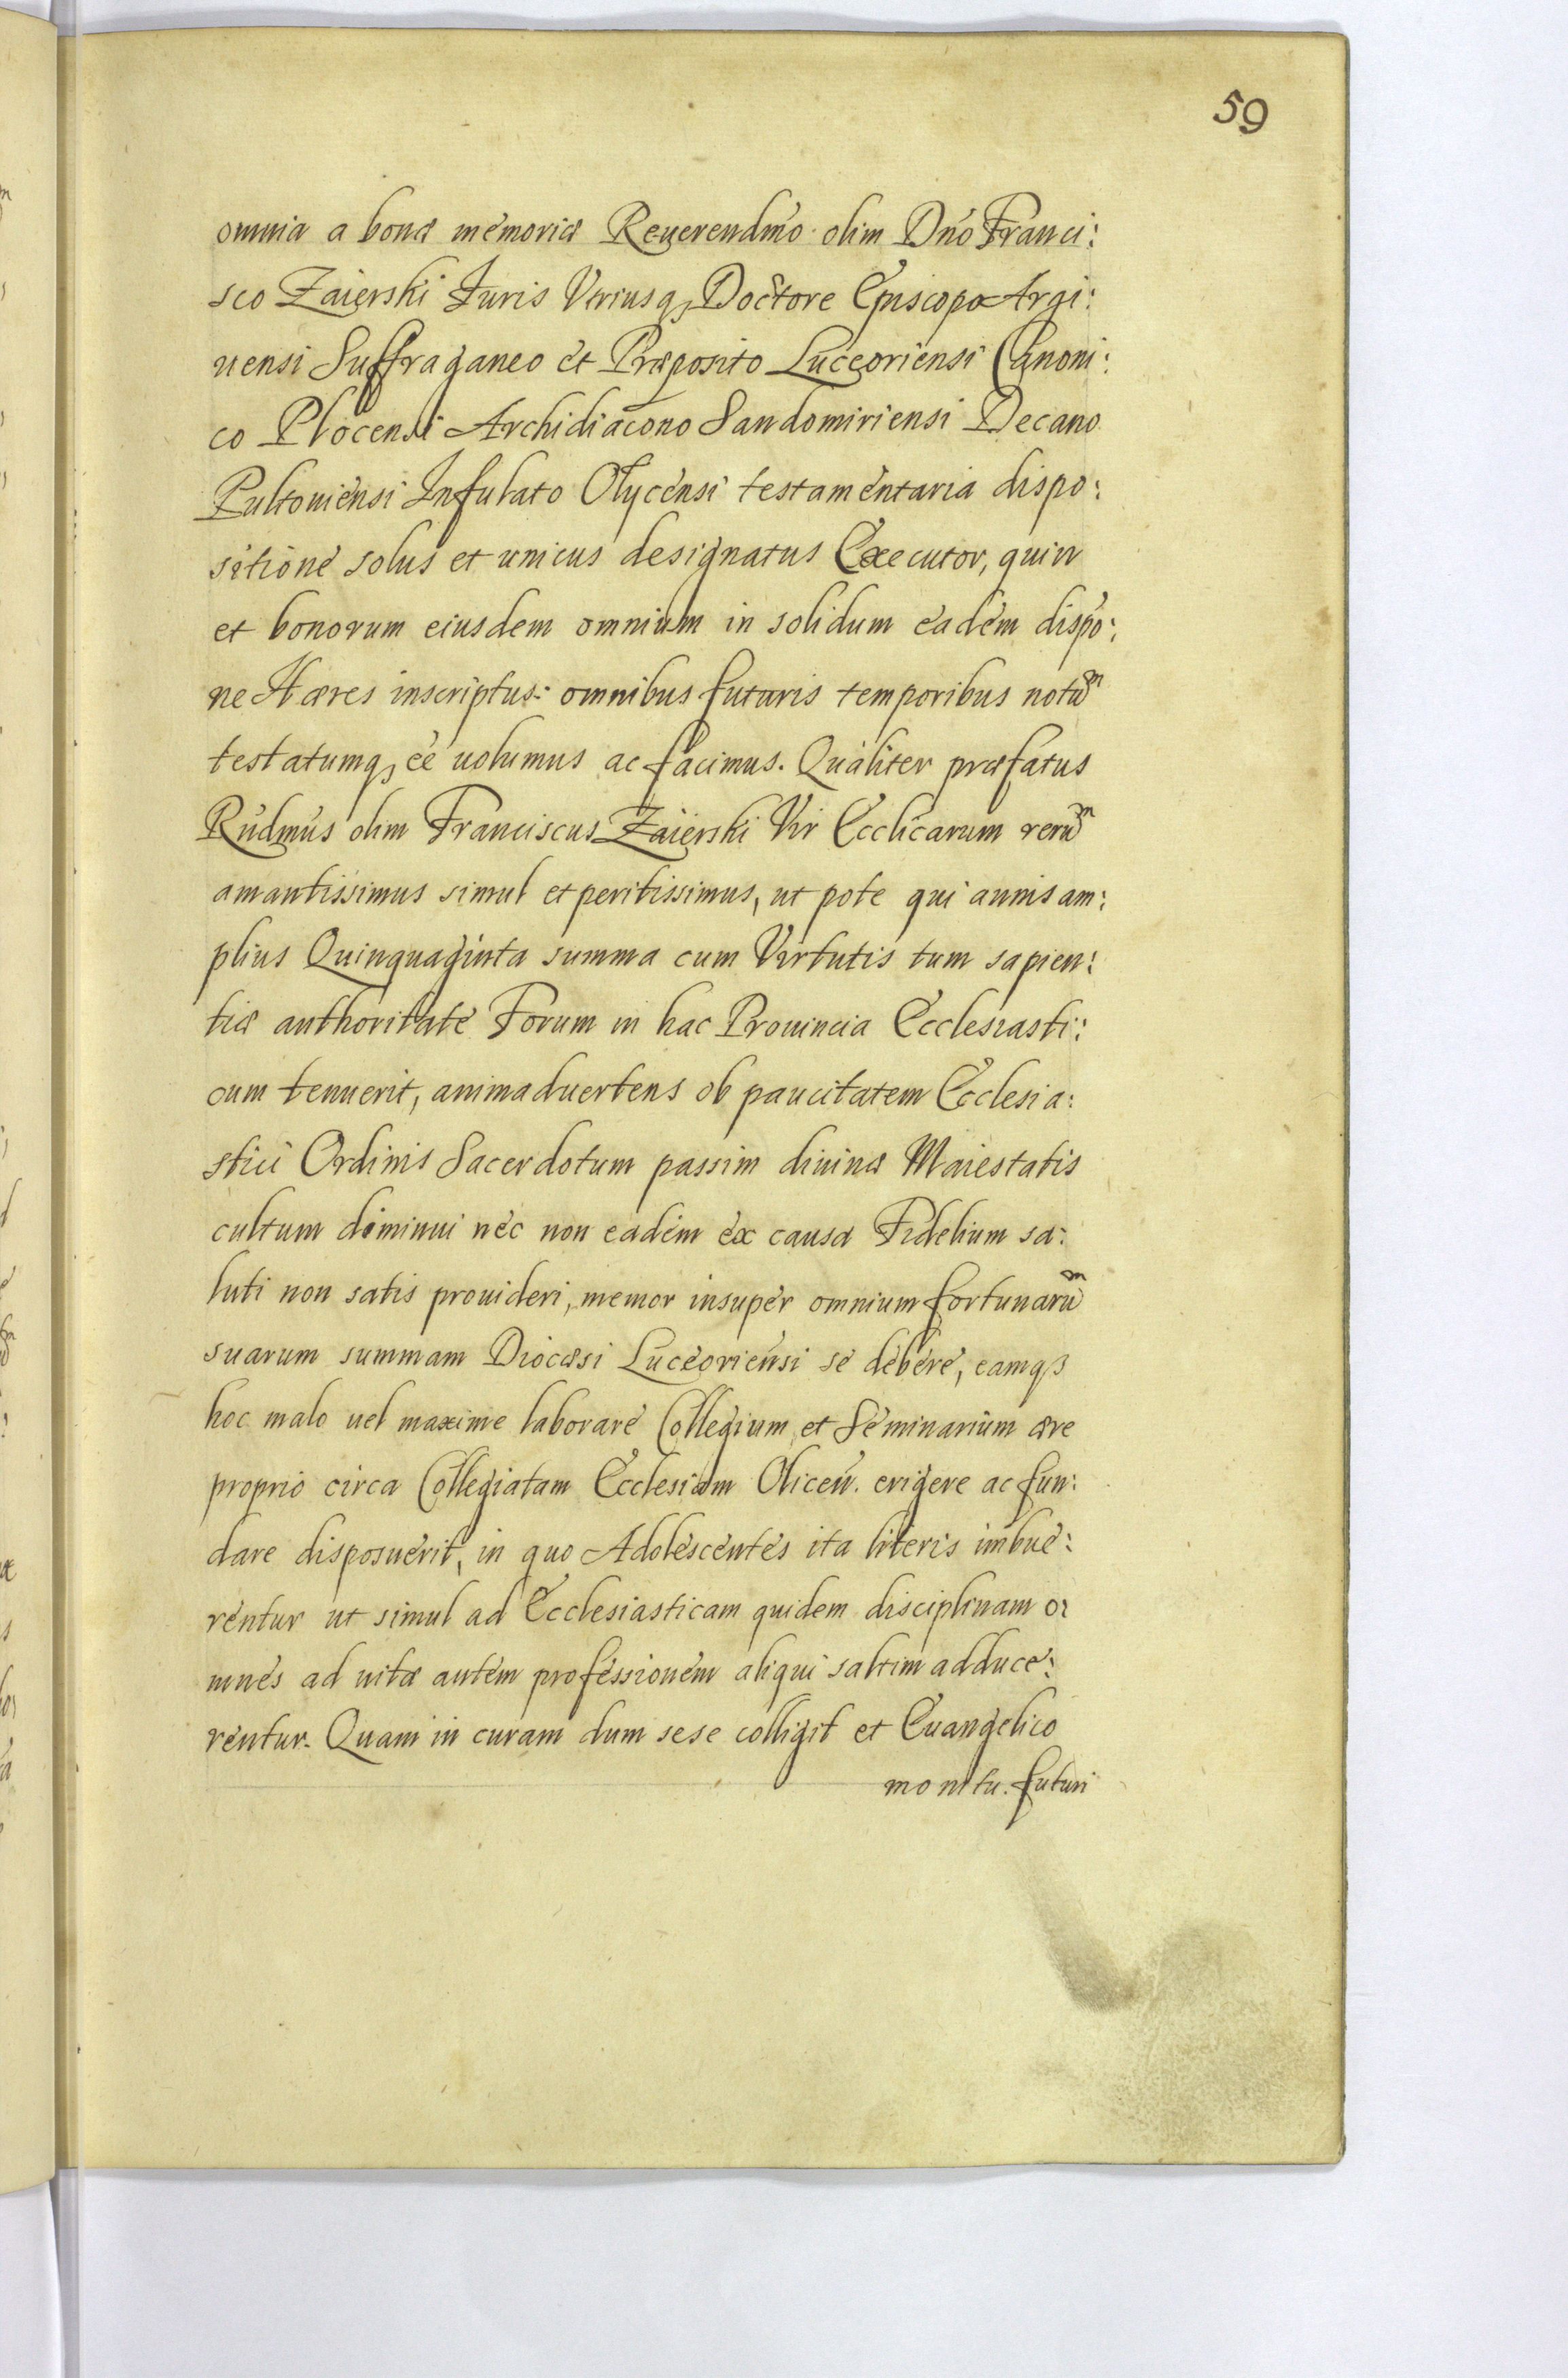 59
omnia a bonæ memoriæ Reuerendmo olim Dno Franci:
sco Zaierski Iuris Vtriusq, Doctore Episcopo Argi:
uensi Suffraganeo et Præposito Luceoriensi Canoni:
co Plocensi Archidiacono Sandomiriensi Decano
Pultouiensi Infulato Olycensi testamentaria dispo:
sitione solus et unicus designatus Executor, quin
et bonorum eiusdem omnium in solidum eadem dispo:
ne Hæres inscriptus: omnibus futuris temporibus notũ
testatumq, ee uolumus ac facimus. Qualiter præfatus
Rudmus olim Franciscus Zaierski Vir Ecclicarum rerũ
amantissimus simul et peritissimus, ut pote qui annis am:
plius Quinquaginta summa cum Virtutis tum sapien:
tiæ authoritate Forum in hac Prouincia Ecclesiasti:
cum tenuerit, animaduertens ob paucitatem Ecclesia:
stici Ordinis Sacerdotum passim diuinæ Maiestatis
cultum diminui nec non eadem ex causa Fidelium sa:
luti non satis prouideri, memor insuper omnium fortunarũ
suarum summam Diocæsi Luceoriensi se debere, eamqz
hoc malo uel maxime laborare Collegium et Seminarium ære
proprio circa Collegiatam Ecclesiam Olicen. erigere ac fun:
dare disposuerit, in quo Adolescentes ita literis imbue:
rentur ut simul ad Ecclesiasticam quidem disciplinam o:
mnes ad uitæ autem professionem aliqui saltim adduce:
rentur. Quam in curam dum sese colligit et Euangelico
monitu. futuri